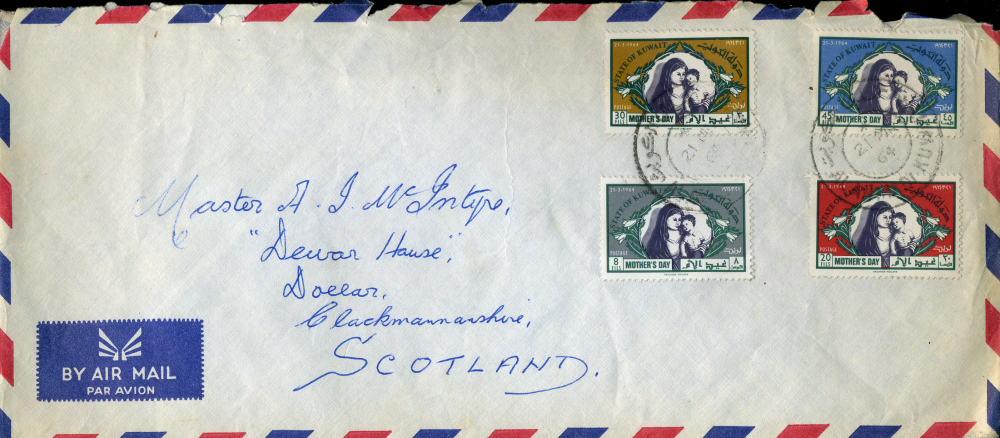 21-3-1964 ٢١-٣-١٩٦٤
STATE OF KUWAIT دولة الكويت
POSTAGE
30 FILS MOTHER'S DAY عيد الأم ٣٠
21-3-1964 ٢١-٣-١٩٦٤
STATE OF KUWAIT دولة الكويت
POSTAGE
45 FILS MOTHER'S DAY عيد الأم ٤٥
21 64
21 64
KUWAIT
21-3-1964
STATE OF KUWAIT دولة الكويت
POSTAGE
8 FILS MOTHER'S DAY عيد الأم ٨
21-3-1964
STATE OF KUWAIT دولة الكويت
POSTAGE
20 FILS MOTHER'S DAY عيد الأم ٢٠
Master A. I. McIntyre,
"Dewar House",
Dollar,
Clackmannanshire,
SCOTLAND.
BY AIR MAIL
PAR AVION